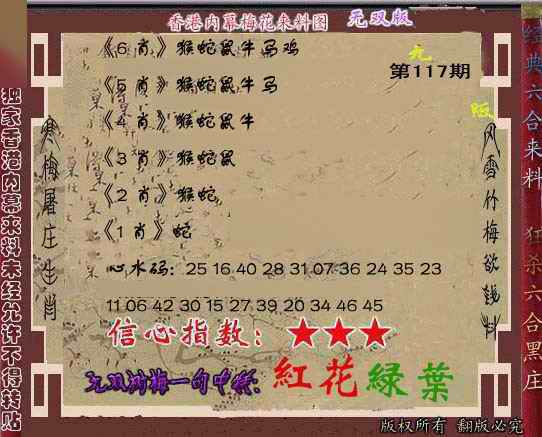 香港内幕梅花来料图 无双版
《6肖》猴蛇鼠牛马鸡
九
第117期
《5肖》猴蛇鼠牛马
《4肖》猴蛇鼠牛
《3肖》猴蛇鼠
《2肖》猴蛇
《1肖》蛇
心水码: 25 16 40 28 31 07 36 24 35 23
11 06 42 30 15 27 39 20 34 46 45
信心指数: ★★★
紅花綠葉
版权所有 翻版必究
独家香港内幕来料未经允许不得转贴
寒梅屠庄生肖
风雪竹梅欲钱料
经典六合来料 狂杀六合黑庄